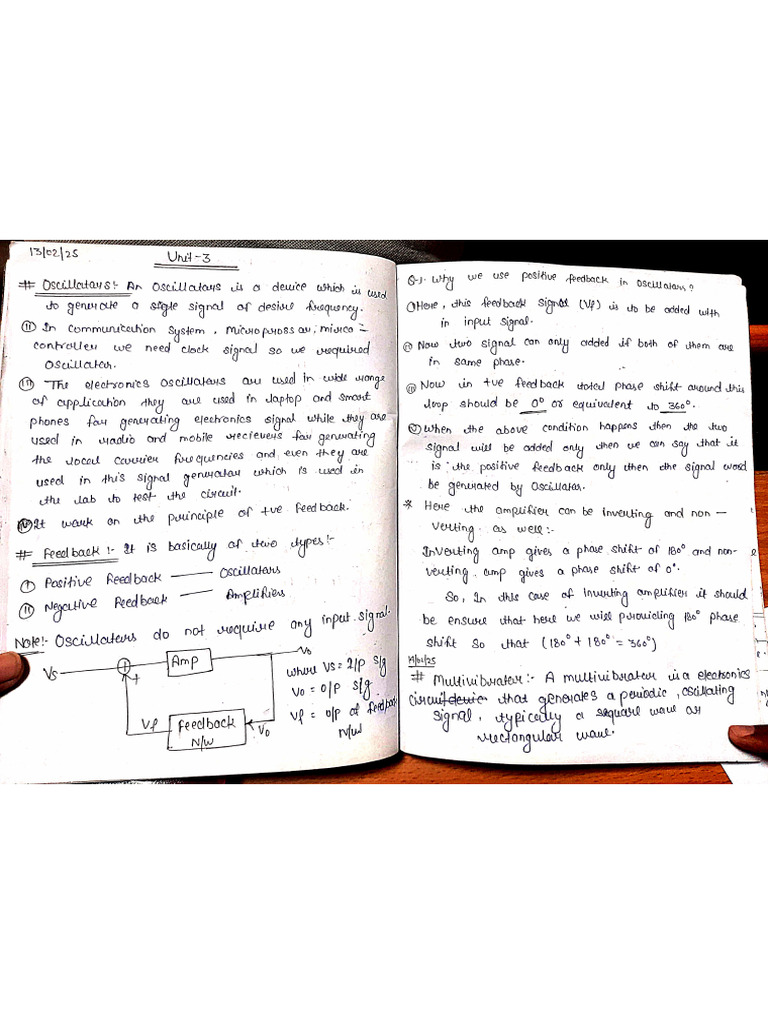 13/02/25
Unit-3
# Oscillators:- An oscillators is a device which is used
to generate a sigle signal of desire frequency.
(ii) In communication system, microprossar, mirco-
controller we need clock signal so we required
oscillator.
(iii) The electronics oscillators are used in wide range
of application they are used in laptop and smart
phones for generating electronics signal while they are
used in radio and mobile recievers for generating
the local carrier frequencies and even they are
used in this signal generator which is used in
the lab to test the circuit.
(iv) It work on the principle of +ve feedback.
# Feedback:- It is basically of two types:-
(i) Positive Feedback — Oscillators
(ii) Negative Feedback — Amplifiers
Note:- Oscillators do not require any input signal.
Vs
+
Amp
Vo
+
Vf
Feedback
N/W
Vo
where Vs = I/P s/g
Vo = O/P s/g
Vf = O/P of feedback
N/W
Q-1. Why we use positive feedback in oscillators?
(i) Here, this feedback signal (Vf) is to be added with
in input signal.
(ii) Now two signal can only added if both of them are
in same phase.
(iii) Now in +ve feedback total phase shift around this
loop should be 0° or equivalent to 360°.
(iv) When the above condition happens then the two
signal will be added only then we can say that it
is the positive feedback only then the signal word
be generated by Oscillator.
* Here the amplifier can be inverting and non-
verting as well:-
Inverting amp gives a phase shift of 180° and non-
verting amp gives a phase shift of 0°.
So, In this case of inverting amplifier it should
be ensure that here we will provicling 180° phase
shift so that (180° + 180° = 360°)
# Multivibrator:- A multivibrator is a electronics
circuit device that generates a periodic, oscillating
signal, typically a square wave or
rectangular wave.